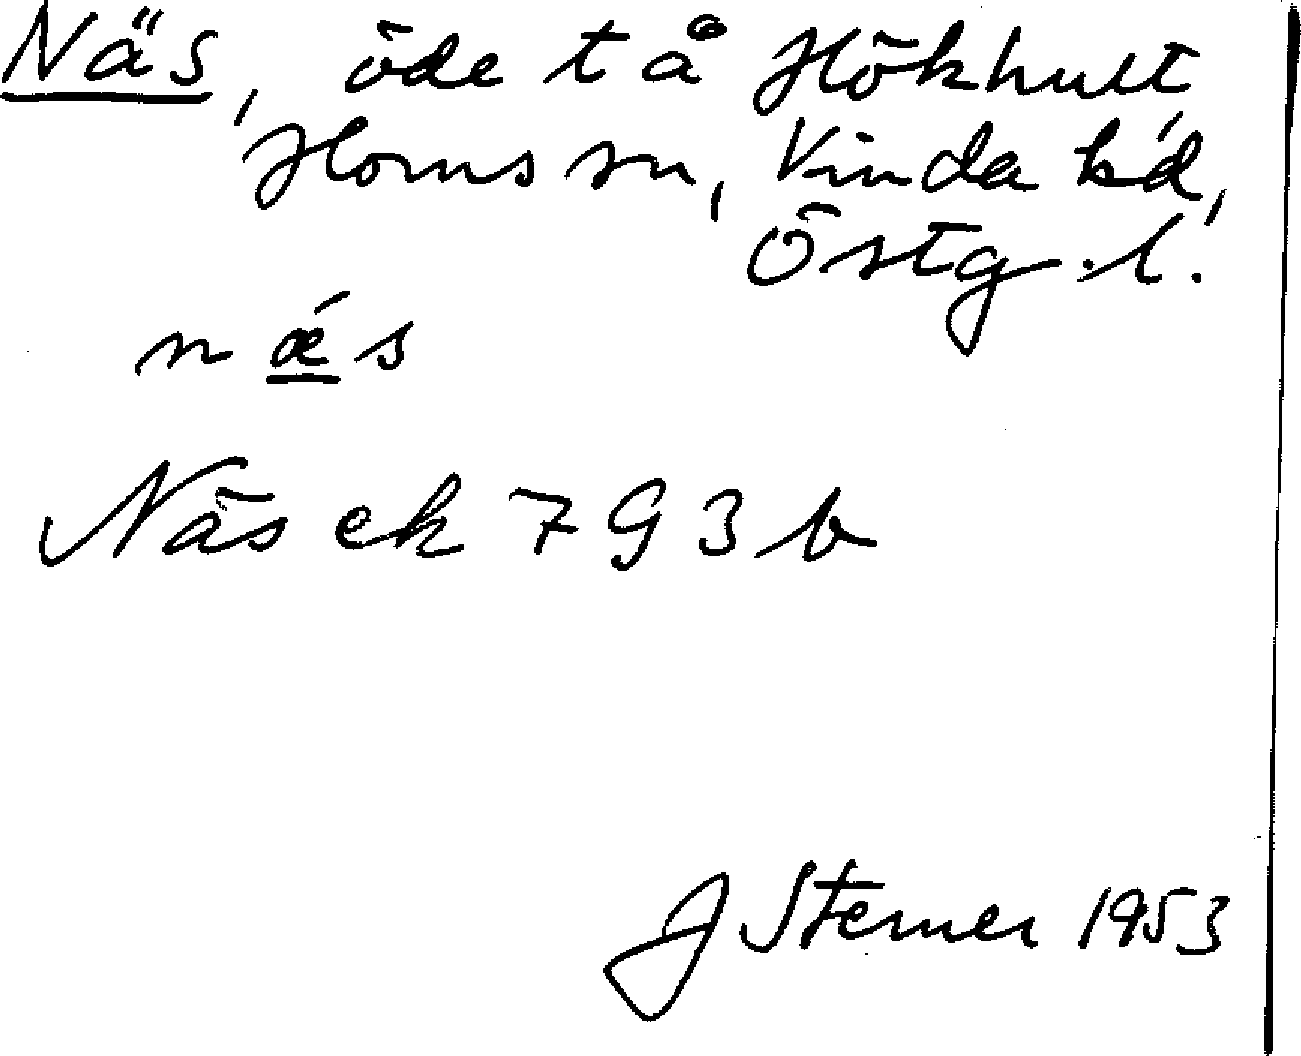 Näs, öde t å Hökhult
Horns sn, Kinda hd,
Östg. l.
nǽs
Näs ek 793 b
J Sterner 1953